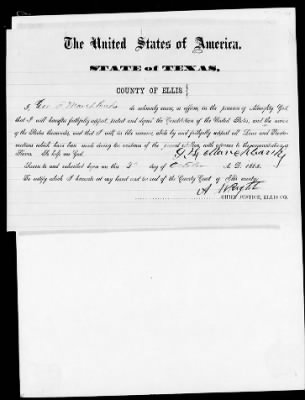 The United States of America.
STATE of TEXAS,
COUNTY OF ELLIS
I, Geo. do solemnly swear, or affirm, in the presence of Almighty God,
that I will henceforth faithfully support, protect and defend the Constitution of the United States, and the union
of the States thereunder, and that I will in like manner, abide by and faithfully support all Laws and Procla-
mations which have been made during the existence of the present rebellion, with reference to the emancipation of
Slaves. So help me God.
Sworn to and subscribed before me this 3 day of A. D. 1865.
To certify which I hereunto set my hand and seal of the County Court of Ellis county.
A Wright
CHIEF JUSTICE, ELLIS CO.